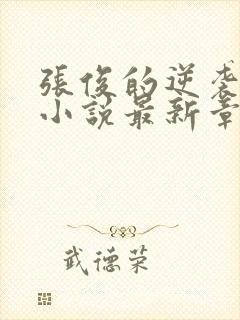 張俊的逆袭
小説最新章
武德荣